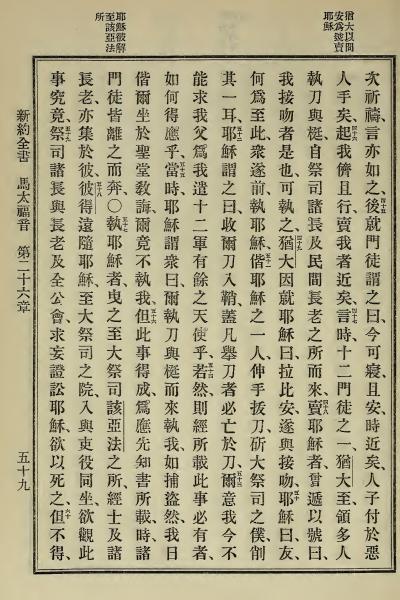 猶大以問
安爲號賣
耶穌
耶穌被解
至該亞法
所
次祈禱、言亦如之、後就門徒謂之曰、今可寢且安、時近矣、人子付於惡
人手矣、四十六起、我儕且行、賣我者近矣、四十七言時、十二門徒之一猶大至、領多人
執刀與梃、自祭司諸長及民間長老之所而來、四十八賣耶穌者、嘗遞以號曰、
我接吻者是也、可執之、四十九猶大因就耶穌曰、拉比安、遂與接吻、五十耶穌曰、友
何爲至此、衆遂前執耶穌、五十一偕耶穌之一人、伸手拔刀、斫大祭司之僕、削
其一耳、五十二耶穌謂之曰、收爾刀入鞘、蓋凡舉刀者、必亡於刀、五十三爾意我今不
能求我父、爲我遣十二軍有餘之天使乎、五十四若然、則經所載此事必有者、
如何得應乎、五十五當時、耶穌謂衆曰、爾執刀與梃而來執我、如捕盜然、我日
偕爾坐於聖堂敎誨、爾竟不執我、五十六但此事得成、爲應先知書所載、時諸
門徒皆離之而奔、○五十七執耶穌者、曳之至大祭司該亞法之所、經士及諸
長老、亦集於彼、五十八彼得遠隨耶穌、至大祭司之院、入與吏役同坐、欲觀此
事究竟、五十九祭司諸長與長老及全公會、求妄證訟耶穌、欲以死之、六十但不得、
新約全書　馬太福音　第二十六章　五十九